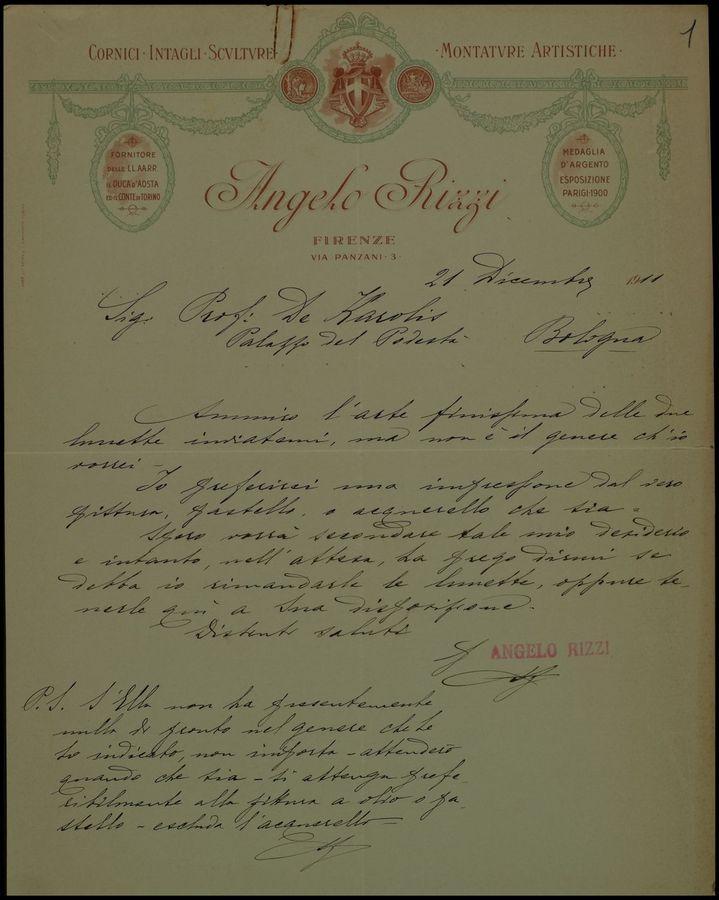 1
CORNICI · INTAGLI · SCVLTVRE
· MONTATVRE ARTISTICHE ·
FORNITORE
DELLE LL.AA.RR.
IL DUCA D'AOSTA
ED IL CONTE DI TORINO
MEDAGLIA
D'ARGENTO
ESPOSIZIONE
PARIGI · 1900
Angelo Rizzi
FIRENZE
VIA PANZANI · 3 ·
21 Dicembre 1911
Sig. Prof: De Karolis
Palazzo del Podestà Bologna
Ammiro l'arte finissima delle due
lunette inviatemi, ma non è il genere ch'io
vorrei —
Io preferirei una impressione dal vero
pittura, pastello, o acquerello che sia —
Spero vorrà secondare tale mio desiderio
e intanto, nell'attesa, La prego dirmi se
debba io rimandarle le lunette, oppure te-
nerle quì a Sua disposizione.
Distinti saluti
ANGELO RIZZI
P.S. S'Ella non ha presentemente
nulla di pronto nel genere che Le
ho indicato, non importa – attenderò
quando che sia – si attenga prefe-
ribilmente alla pittura a olio o pa-
stello – escluda l'acquerello –